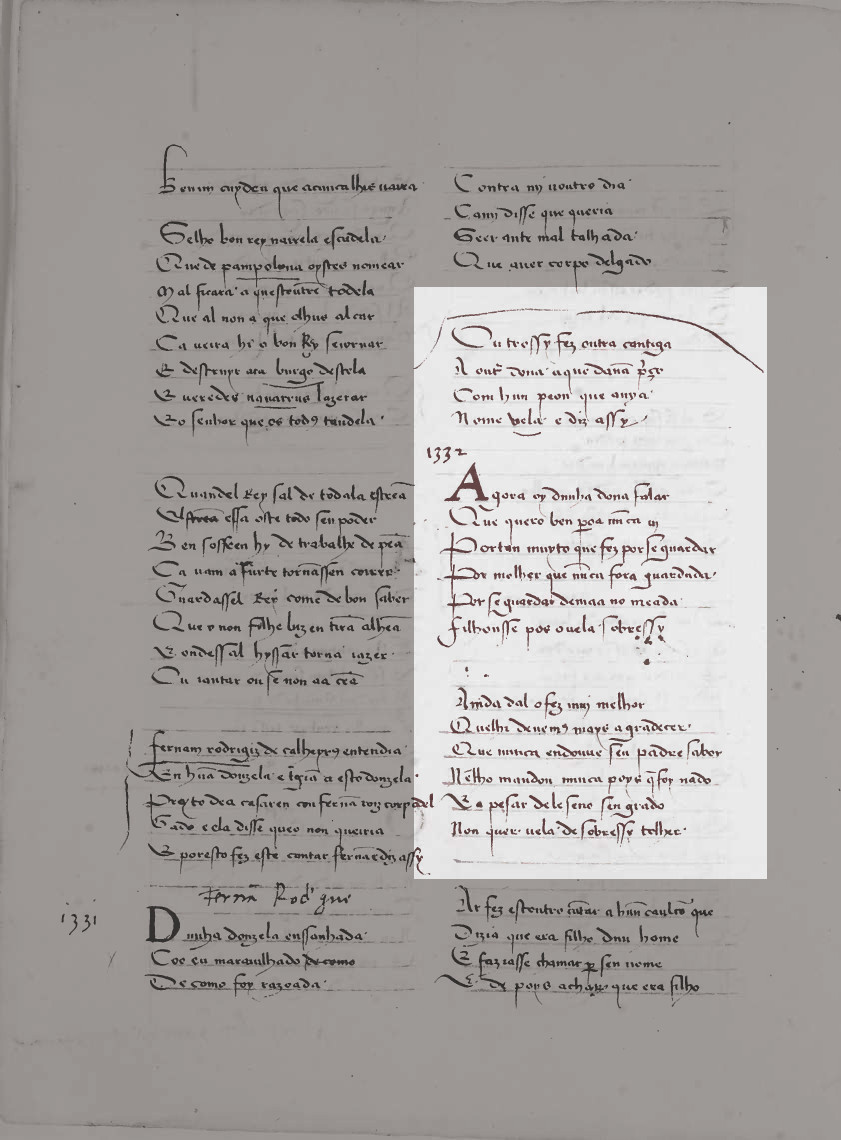 Senim cuydeu que acuntalhis navea
Selho bon rey navrela escudela
Que de pampolona oystes nomear
Mal ficara a questoutre todela
Que al non a que olhus alçar
Ca veira hi o bon Rey seiornar
E destruyr ata burgo destela
E veredes navarrus lazerar
E o senhor que os tod9 tandela
Quandel Rey sal de todala estrea
essa oste todo seu poder
Ben soffren hy de trabalhe de pea
Ca uam a furte tornassen correr
Guardassel Rey come de bon saber
Que o non filhe luz en tirã alhea
E ondessal hyssar torna iazer
Ou iantar ou se non aa cea
fernam rodrigiz de calheyr9 entendia
En hua donzela e tragia a esto donzela
Preyto dea casaren con fernã roiz corpo del
Gado e ela disse queo non queiria
E poresto fez este cantar fernã e diz assy
Fernã Rod' que
1331
Dunha donzela enssanhada
Soo eu maravilhado de como
De como foy razoada
Contra mj noutro dia
Cami disse que queria
Seer ante mal talhada
Que auer corpo delgado
Outrossy fez outra cantiga
A outr dona a que dauã prço
Com hun peon que auya
Nome vela e diz assy
1332
Agora oy dunha dona falar
Que quero ben pero a nunca uj
Por tan muyto que fez por se guardar
Por molher que nunca fora guardada
Por se guardar de maa nomeada
filhousse pos o uela sobressy
Ainda dal o fez muj melhor
Quelhi deuem9 mays agradecer
Que nunca endouue seu padre sabor
Nẽlho mandou nunca poys q foy nado
E a pesar dele seno seu grado
Non quer uela de sobressy tolher
Ar fez estoutro cãtar a hun caualro que
Dizia que era filho dun home
E faziasse chamar per seu nome
E de poys acharõ que era filho